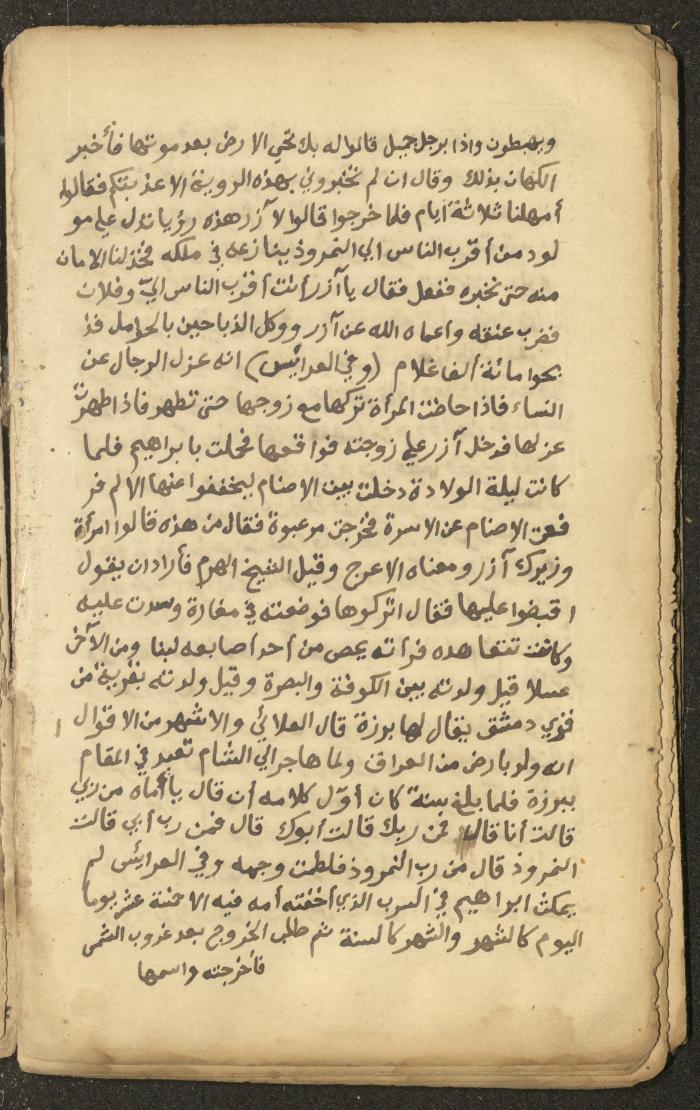 ويهبطون واذا برجل جميل قالوا له بك تحيى الارض بعد موتها فأخبر
الكهان بذلك وقال ان لم تخبروني بهذه الروية الا عذبتكم فقالوا
أمهلنا ثلاثة أيام فلما خرجوا قالوا لآزر هذه رؤيا تدل على مو
لود من أقرب الناس الى النمروذ ينازعه في ملكه فخذ لنا الامان
منه حتى نخبره ففعل فقال يا آزر أنت أقرب الناس اليّ وفلان
فضرب عنقه واعماه الله عن آزر ووكل الذباحين بالحوامل فذ
بحوا مائة ألف غلام (وفي العرائس) انه عزل الرجال عن
النساء فاذا حاضت المرأة تركها مع زوجها حتى تطهر فاذا طهرت
عزلها فدخل آزر على زوجته فواقعها فحملت بابراهيم فلما
كانت ليلة الولادة دخلت بين الاصنام ليخففوا عنها الالم فر
فعت الاصنام عن الاسرة فخرجت مرعوبة فقال من هذه قالوا امرأة
وزيرك آزر ومعناه الاعرج وقيل الشيخ الهرم فأراد ان يقول
اقبضوا عليها فقال اتركوها فوضعته في مغارة وسدت عليه
وكانت تتعاهده فرأته يمص من أحد أصابعه لبنا ومن الآخر
عسلا قيل ولدته بين الكوفة والبصرة وقيل ولدته بقرية من
قرى دمشق يقال لها برزة قال العلائي والاشهر من الاقوال
انه ولد بارض من العراق ولما هاجر الى الشام تعبد في المقام
ببرزة فلما بلغ سنة كان أوّل كلامه أن قال يا أماه من ربي
قالت أنا قال فمن ربك قالت أبوك قال فمن رب أبي قالت
النمروذ قال من رب النمروذ فلطمت وجهه وفي العرائس لم
يمكث ابراهيم في السرب الذي أخفته أمه فيه الا خمسة عشر يوما
اليوم كالشهر والشهر كالسنة ثم طلب الخروج بعد غروب الشمس
فأخرجته واسمها